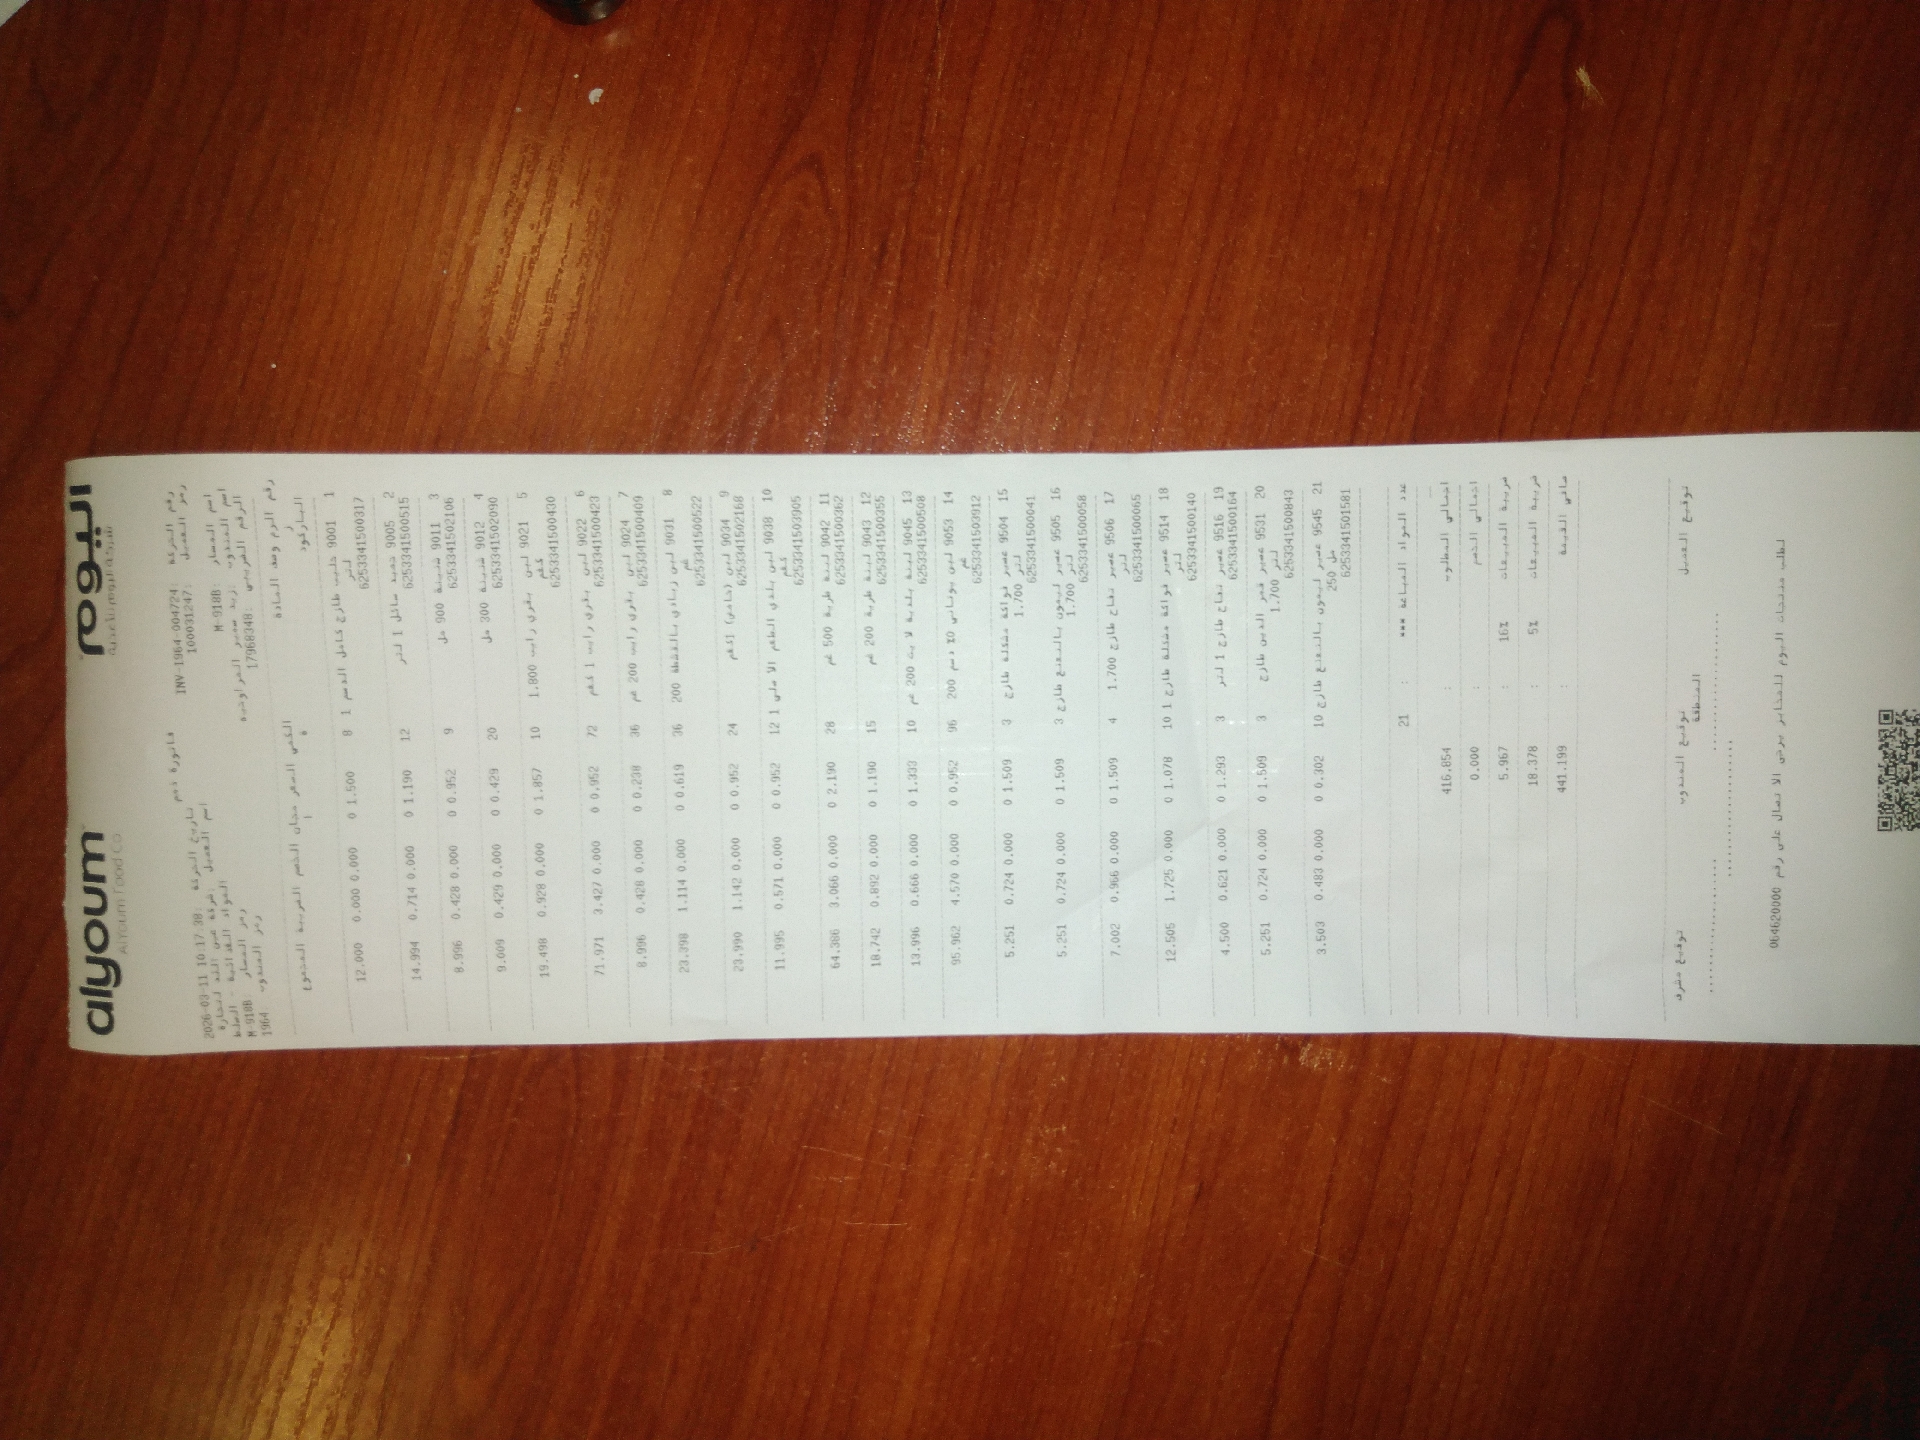 alyoum اليوم
Alyoum Food Co شركة اليوم للأغذية
فاتورة ذمم
رقم الحركة: INV-1964-004724
تاريخ الحركة: 2026-03-11 10:17:38
رمز العميل: 100031247
اسم العميل:
المواد الغذائية - السلط
اسم المسار: M-918B
رمز المسار M-918B
اسم المندوب:
رمز المندوب 1964
الرقم الضريبي: 17968348
رقم الرمز وصف المادة
الباركود
السعر مجان الخصم الضريبة المجموع
1 9001 حليب طازج كامل الدسم 1 8 1.500 0 0.000 0.000 12.000
لتر
6253341500317
2 9005 سائل 1 لتر 12 1.190 0 0.000 0.714 14.994
6253341500515
3 9011 شنينة 900 مل 9 0.952 0 0.000 0.428 8.996
6253341502106
4 9012 شنينة 300 مل 20 0.429 0 0.000 0.429 9.009
6253341502090
5 9021 لبن بقري رايب 1.800 10 1.857 0 0.000 0.928 19.498
كغم
6253341500430
6 9022 لبن بقري رايب 1 كغم 72 0.952 0 0.000 3.427 71.971
6253341500423
7 9024 لبن بقري رايب 200 غم 36 0.238 0 0.000 0.428 8.996
6253341500409
8 9031 لبن زبادي بالقشطة 200 36 0.619 0 0.000 1.114 23.398
غم
6253341500522
9 9034 لبن (حامض) 1كغم 24 0.952 0 0.000 1.142 23.990
6253341502168
10 9038 لبن بلدي الطعم الأصلي 1 12 0.952 0 0.000 0.571 11.995
كغم
6253341503905
11 9042 لبنة طرية 500 غم 28 2.190 0 0.000 3.066 64.386
6253341500362
12 9043 لبنة طرية 200 غم 15 1.190 0 0.000 0.892 18.742
6253341500355
13 9045 لبنة بلدية لايت 200 غم 10 1.333 0 0.000 0.666 13.996
6253341500508
14 9053 لبن يوناني 0% دسم 200 96 0.952 0 0.000 4.570 95.962
غم
6253341503912
15 9504 عصير فواكة مشكلة طازج 3 1.509 0 0.000 0.724 5.251
1.700 لتر
6253341500041
16 9505 عصير ليمون بالنعنع طازج 3 1.509 0 0.000 0.724 5.251
1.700 لتر
6253341500058
17 9506 عصير تفاح طازج 1.700 4 1.509 0 0.000 0.966 7.002
لتر
6253341500065
18 9514 عصير فواكة مشكلة طازج 1 10 1.078 0 0.000 1.725 12.505
لتر
6253341500140
19 9516 عصير تفاح طازج 1 لتر 3 1.293 0 0.000 0.621 4.500
6253341500164
20 9531 عصير قمر الدين طازج 3 1.509 0 0.000 0.724 5.251
1.700 لتر
6253341500843
21 9545 عصير ليمون بالنعنع طازج 10 0.302 0 0.000 0.483 3.503
250 مل
6253341501581
عدد المواد المباعة *** : 21
اجمالي المطلوب : 416.854
اجمالي الخصم : 0.000
ضريبة المبيعات 16% : 5.967
ضريبة المبيعات 5% : 18.378
صافي القيمة : 441.199
توقيع العميل توقيع المندوب توقيع مشرف
المنطقة
لطلب منتجات اليوم للمخابز يرجى الاتصال على رقم 064620000